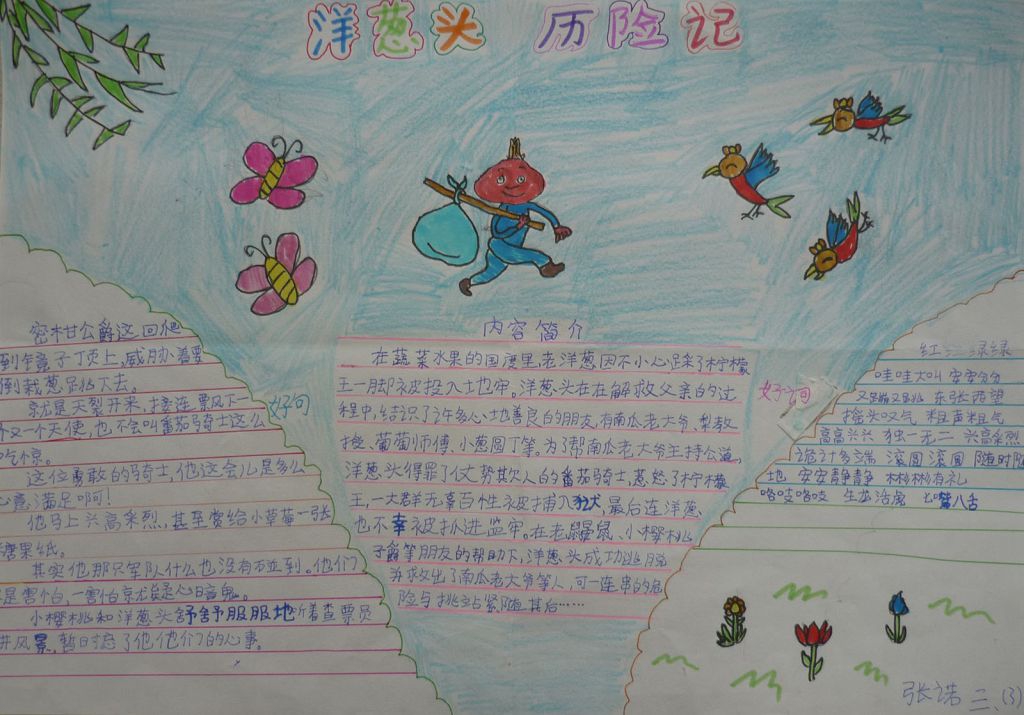 洋葱头 历险记
密柑公爵这回爬
到镜子丁页上,威胁着要
倒栽葱跳下去。
就是天裂开来,接连飘下一
个又一个天使,也不会叫番茄骑士这么
吃惊。
这位勇敢的骑士,他这会儿是多么
心意满足啊!
他马上兴高采烈,甚至赏给小草莓一张
糖果纸。
其实他那只军队什么也没有碰到。他们
是害怕,一害怕就总是
小樱桃和洋葱头舒舒服服地听着查票员
讲风景,暂时忘了他他们的心事。
好句
内容简介
在蔬菜水果的国度里,老洋葱因不小心踩了柠檬
王一脚却被投入土地牢。洋葱头在在解救父亲的过
程中,结识了许多心地善良的朋友,有南瓜老大爷、梨教
授、葡萄师傅、小葱园丁等。为了帮南瓜老大爷主持公道,
洋葱头得罪了仗势其欠人的番茄骑士,惹怒了柠檬
王,一大群无辜百性被捕入狱,最后连洋葱
也不幸被抓进监牢。在老鼹鼠、小樱桃
子爵等朋友的帮助下,洋葱头成功逃脱
并救出了南瓜老大爷等人,可一连串的危
险与挑战紧随其后……
好词
红 绿绿
哇哇大叫 安安分分
又蹦又跳 东张西望
摇头叹气 粗声粗气
高高兴兴 独一无二 兴高采烈
诡计多端 滚圆滚圆 随时随
地 安安静静 彬彬有礼
咯吱咯吱 生龙活虎 七嘴八舌
张诺 三、(3)